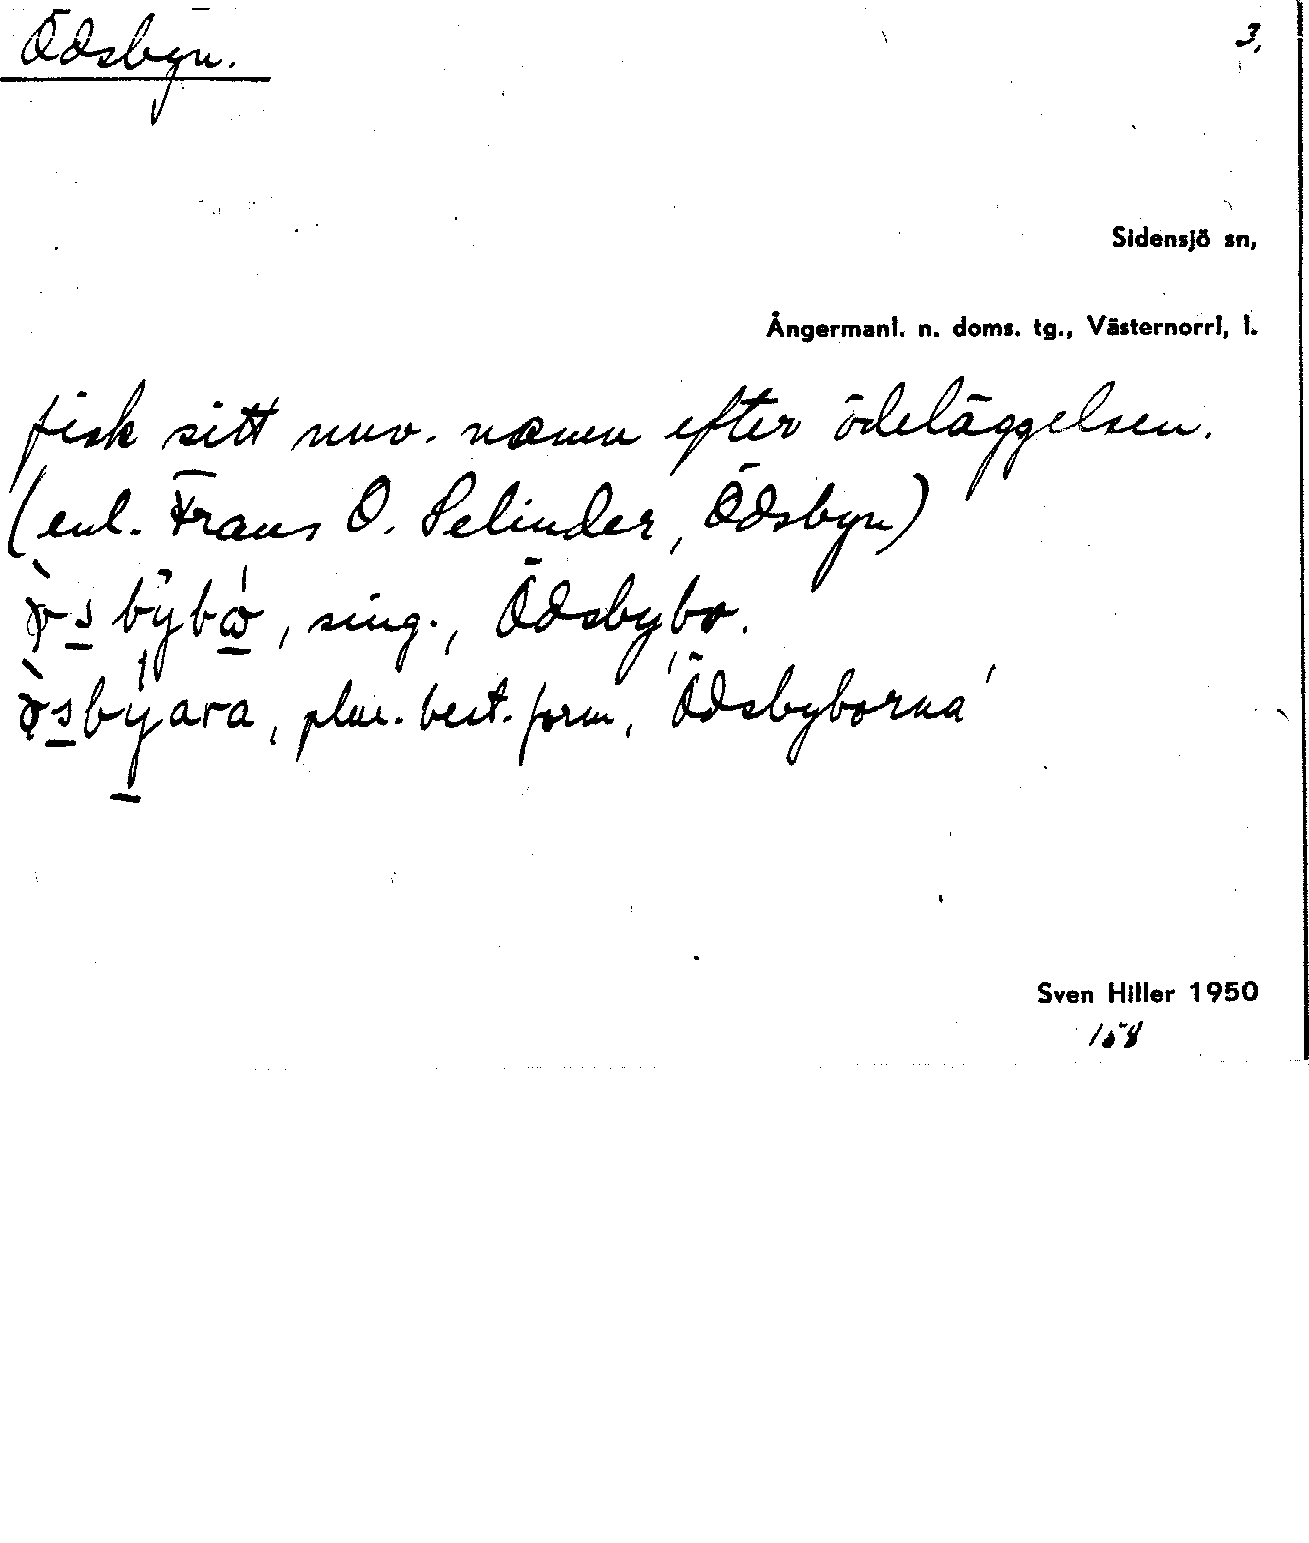 Ödsbyn.
3.
Sidensjö sn,
Ångermanl. n. doms. tg., Västernorrl. l.
fick sitt nuv. namn efter ödeläggelsen.
(enl. Frans O. Selinder, Ödsbyn)
, sing., Ödsbybo.
, plur. best. form, 'Ödsbyborna'
Sven Hiller 1950
158